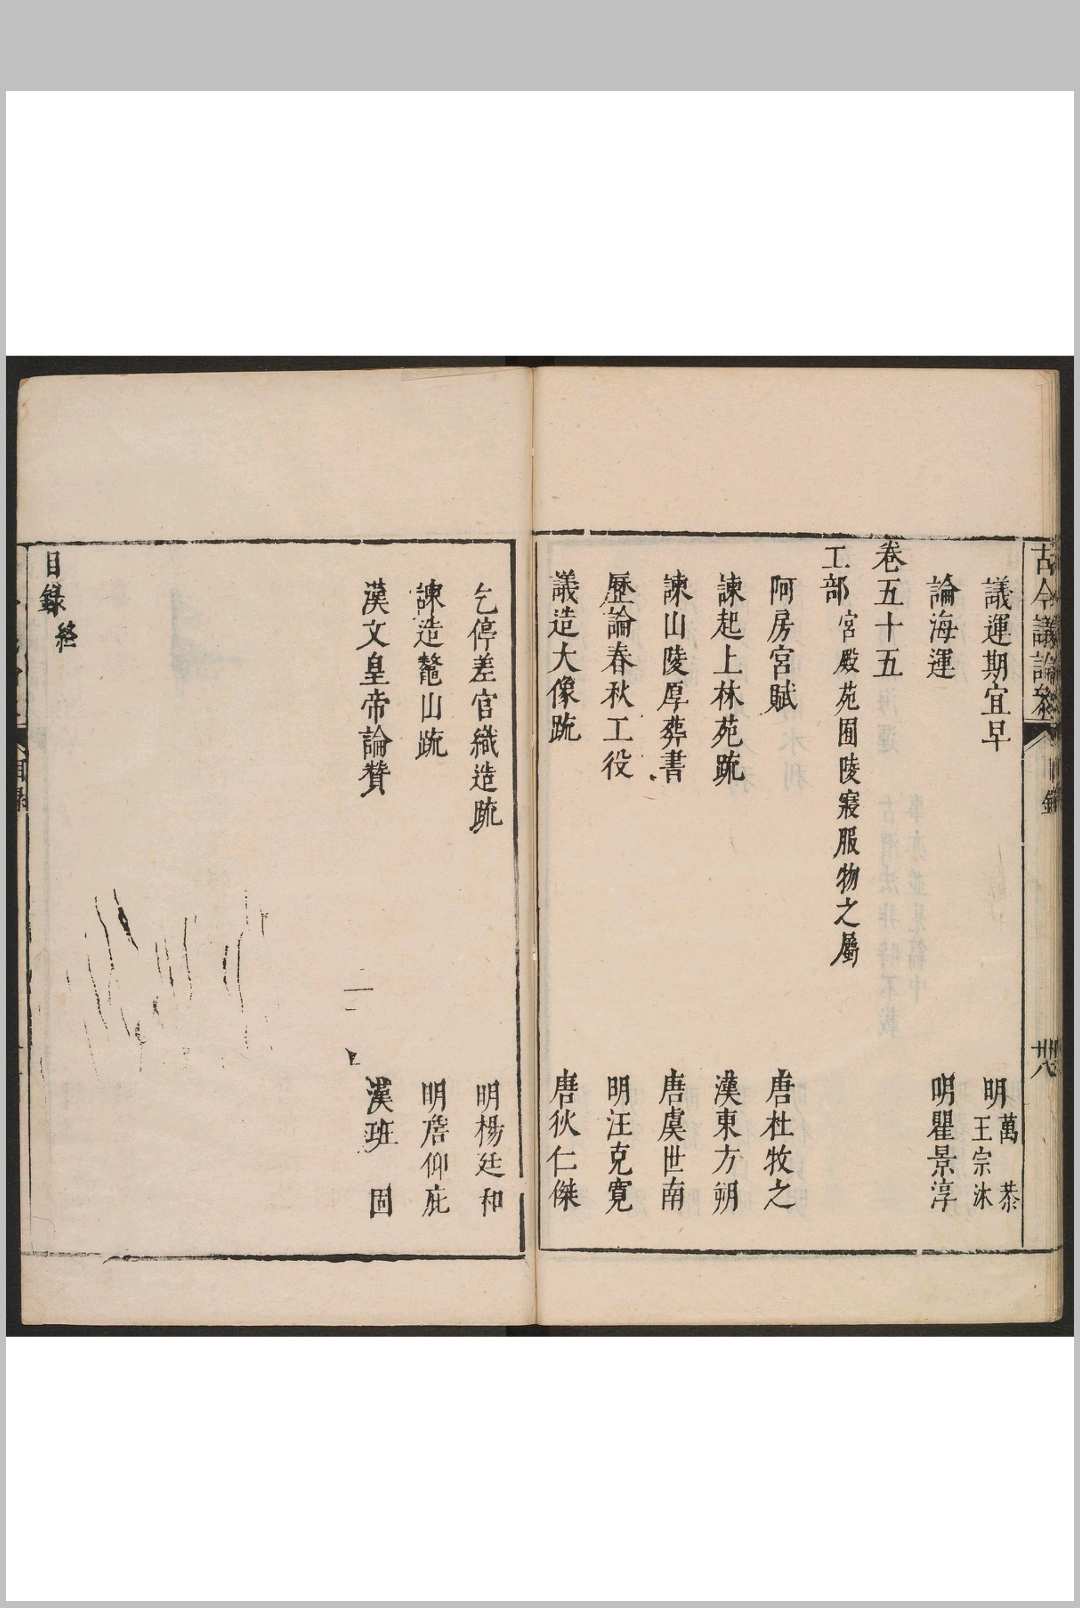 古今議論參
目錄
卅八
議運期宜早
明萬恭
王宗沐
論海運
明瞿景淳
卷五十五
工部 宮殿苑囿陵寢服物之屬
阿房宮賦
唐杜牧之
諫起上林苑疏
漢東方朔
諫山陵厚葬書
唐虞世南
歷論春秋工役
明汪克寬
議造大像疏
唐狄仁傑
乞停差官織造疏
明楊廷和
諫造鰲山疏
明詹仰庇
漢文皇帝論贊
漢班固
目錄終